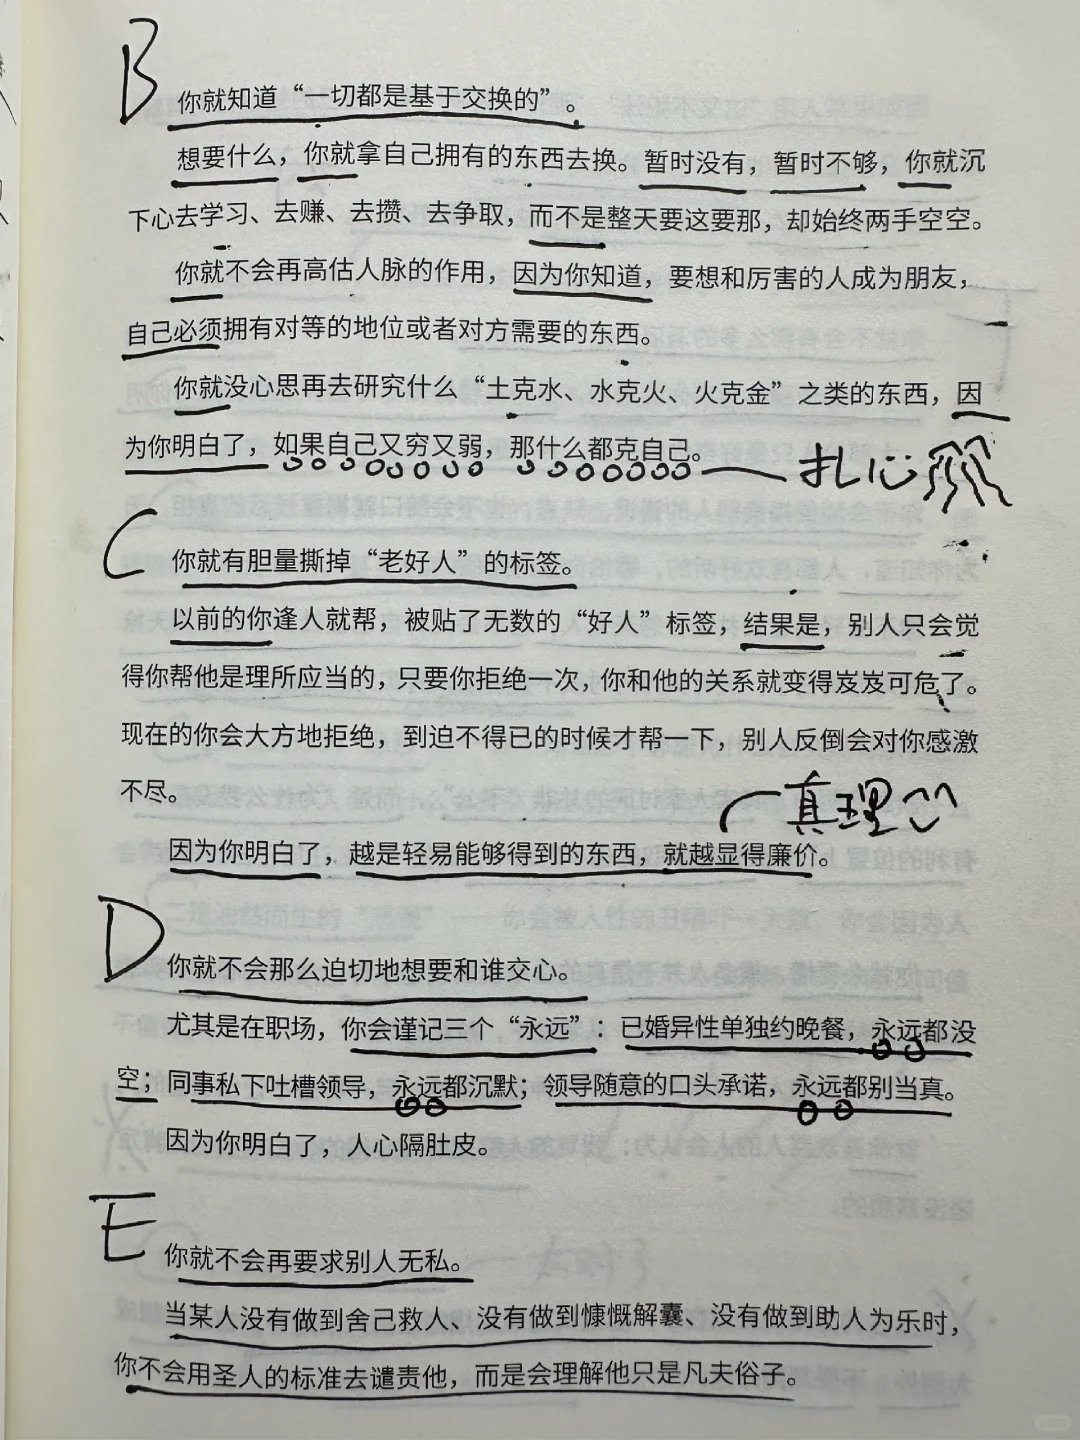 B
你就知道“一切都是基于交换的”。
想要什么，你就拿自己拥有的东西去换。暂时没有，暂时不够，你就沉
下心去学习、去赚、去攒、去争取，而不是整天要这要那，却始终两手空空。
你就不会再高估人脉的作用，因为你知道，要想和厉害的人成为朋友，
自己必须拥有对等的地位或者对方需要的东西。
你就没心思再去研究什么“土克水、水克火、火克金”之类的东西，因
为你明白了，如果自己又穷又弱，那什么都克自己。
扎心
C
你就有胆量撕掉“老好人”的标签。
以前的你逢人就帮，被贴了无数的“好人”标签，结果是，别人只会觉
得你帮他是理所应当的，只要你拒绝一次，你和他的关系就变得岌岌可危了。
现在的你会大方地拒绝，到迫不得已的时候才帮一下，别人反倒会对你感激
不尽。
真理
因为你明白了，越是轻易能够得到的东西，就越显得廉价。
D
你就不会那么迫切地想要和谁交心。
尤其是在职场，你会谨记三个“永远”：已婚异性单独约晚餐，永远都没
空；同事私下吐槽领导，永远都沉默；领导随意的口头承诺，永远都别当真。
因为你明白了，人心隔肚皮。
E
你就不会再要求别人无私。
当某人没有做到舍己救人、没有做到慷慨解囊、没有做到助人为乐时，
你不会用圣人的标准去谴责他，而是会理解他只是凡夫俗子。